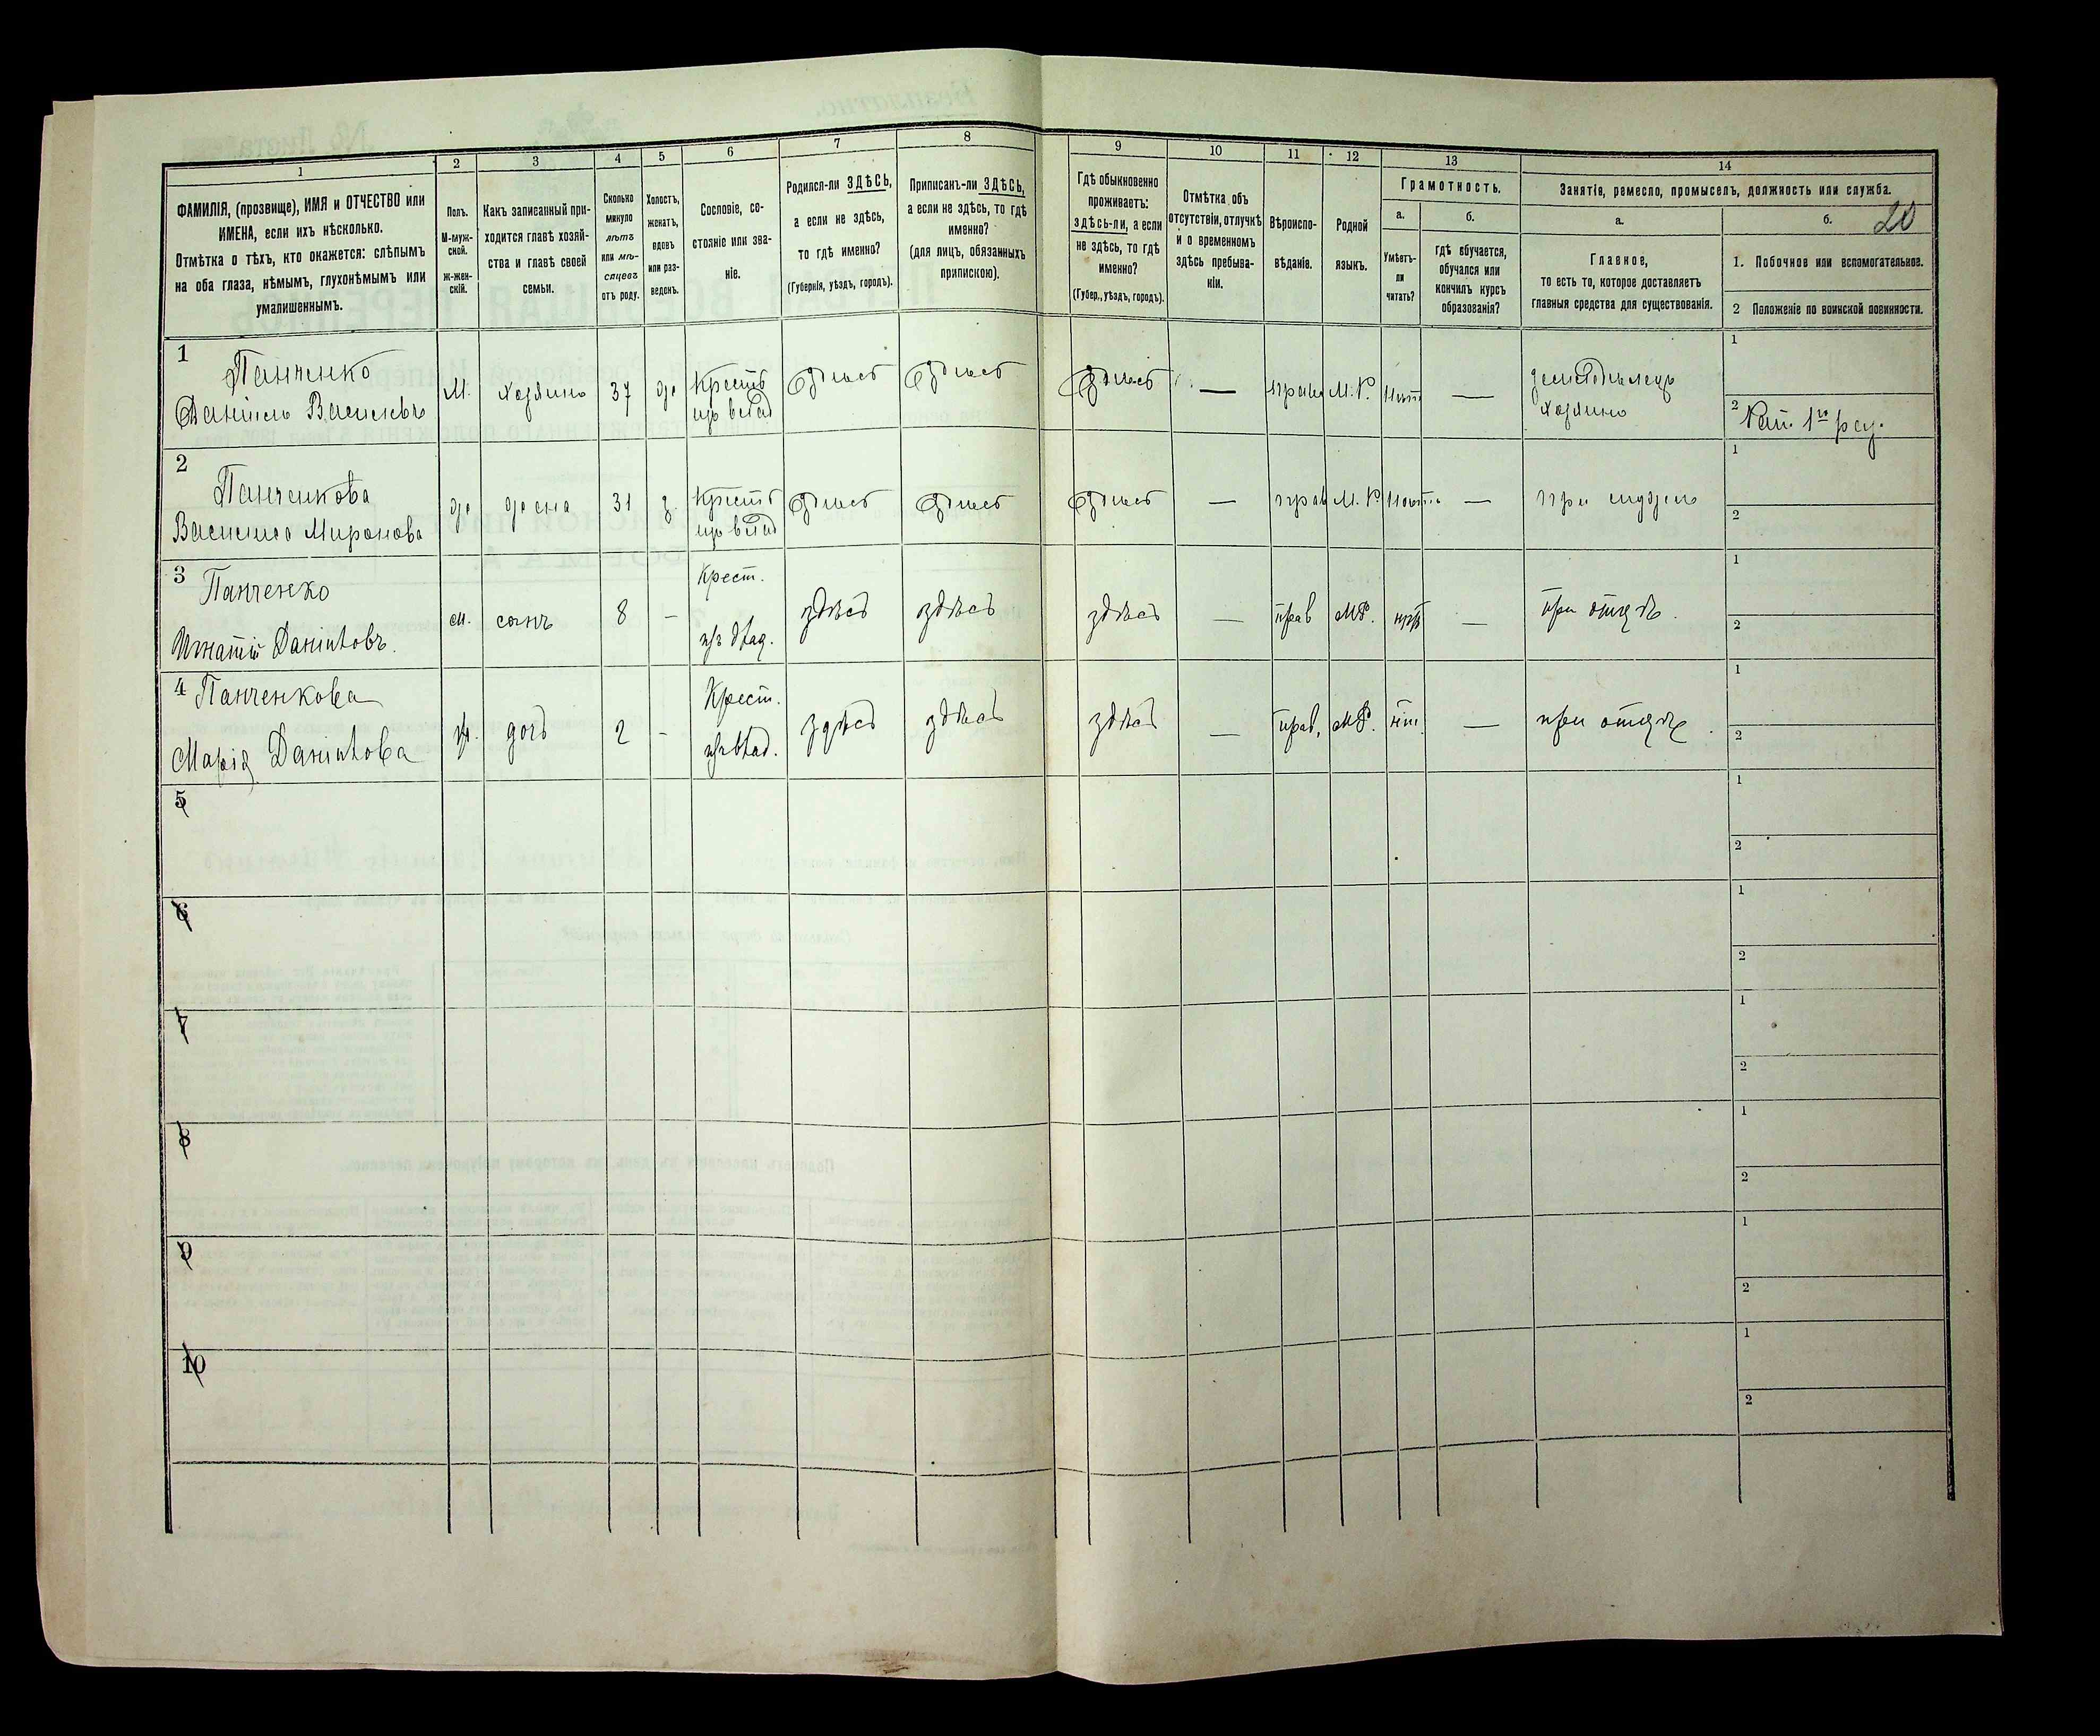 1
2
3
4
5
6
7
8
9
10
11
12
13
14
ФАМИЛІЯ, (прозвище), ИМЯ и ОТЧЕСТВО или
ИМЕНА, если ихъ нѣсколько.
Отмѣтка о тѣхъ, кто окажется: слѣпымъ
на оба глаза, нѣмымъ, глухонѣмымъ или
умалишеннымъ.
Полъ.
М-муж-
ской.
ж-жен-
скій.
Какъ записанный при-
ходится главѣ хозяй-
ства и главѣ своей
семьи.
Сколько
минуло
лѣтъ
или мѣ-
сяцевъ
отъ роду.
Холостъ,
женатъ,
вдовъ
или раз-
веденъ.
Сословіе, со-
стояніе или зва-
ніе.
Родился-ли ЗДѢСЬ,
а если не здѣсь,
то гдѣ именно?
(Губернія, уѣздъ, городъ).
Приписанъ-ли ЗДѢСЬ,
а если не здѣсь, то гдѣ
именно?
(для лицъ, обязанныхъ
припискою).
Гдѣ обыкновенно
проживаетъ:
здѣсь-ли, а если
не здѣсь, то гдѣ
именно?
(Губер., уѣздъ, городъ).
Отмѣтка объ
отсутствіи, отлучкѣ
и о временномъ
здѣсь пребыва-
ніи.
Вѣроиспо-
вѣданіе.
Родной
языкъ.
Грамотность.
а.
Умѣетъ-
ли
читать?
б.
гдѣ обучается,
обучался или
кончилъ курсъ
образованія?
Занятія, ремесло, промыселъ, должность или служба.
а.
Главное,
то есть то, которое доставляетъ
главныя средства для существованія.
б.
20
1. Побочное или вспомогательное.
2 Положеніе по воинской повинности.
1
Панченко
Даніилъ Васильевъ
М.
хозяинъ
37
ж
Крестъ
изъ влад
здѣсь
здѣсь
здѣсь
—
прав
М. Р.
нѣтъ
—
земледѣлецъ
хозяинъ
1
2
Рат. 1го раз.
2
Панченкова
Василиса Миронова
ж
жена
31
з.
Крестъ
изъ влад
здѣсь
здѣсь
здѣсь
—
прав
М. Р.
нѣтъ
—
при мужѣ
1
2
3
Панченко
Игнатій Даніиловъ.
м.
сынъ
8
–
Крест.
изъ влад.
здѣсь
здѣсь
здѣсь
—
прав
М.Р.
нѣтъ
—
при отцѣ.
1
2
4
Панченкова
Марія Даніилова
ж.
дочь
2
–
Крест.
изъ влад.
здѣсь
здѣсь
здѣсь
—
прав.
М.Р.
нѣт.
—
при отцѣ.
1
2
5
1
2
6
1
2
7
1
2
8
1
2
9
1
2
10
1
2